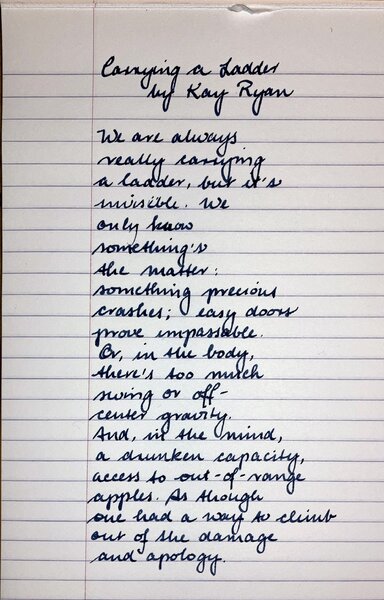 Carrying a Ladder
by Kay Ryan
We are always
really carrying
a ladder, but it's
invisible. We
only know
something's
the matter:
something precious
crashes; easy doors
prove impassable.
Or, in the body,
there's too much
swing or off-
center gravity.
And, in the mind,
a drunken capacity,
access to out-of-range
apples. As though
one had a way to climb
out of the damage
and apology.